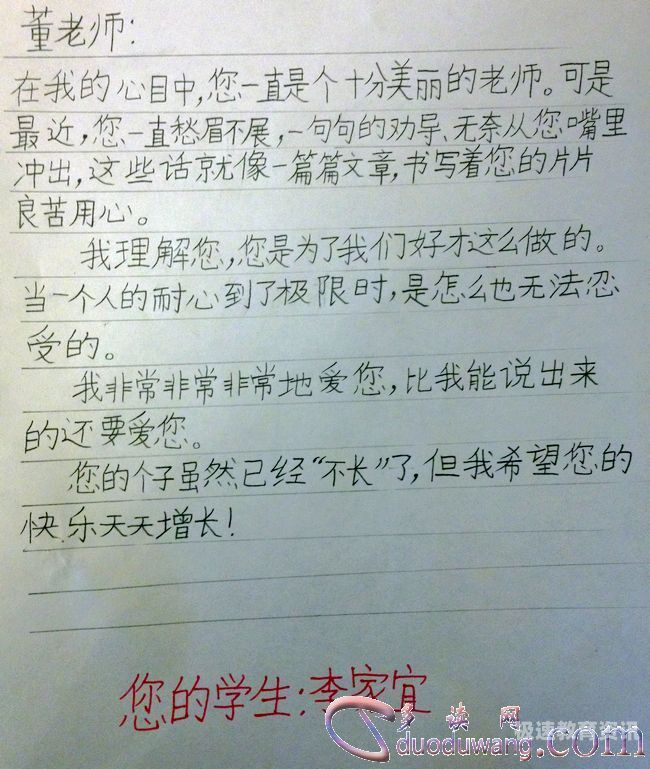 董老师:
在我的心目中,您一直是个十分美丽的老师。可是
最近,您一直愁眉不展,一句句的劝导、无奈从您嘴里
冲出,这些话就像一篇篇文章,书写着您的片片
良苦用心。
我理解您,您是为了我们好才这么做的。
当一个人的耐心到了极限时,是怎么也无法忍
受的。
我非常非常非常地爱您,比我能说出来
的还要爱您。
您的个子虽然已经“不长”了,但我希望您的
快乐天天增长!
您的学生:李家宜
多读网
极速教育资讯
duoduwang.com